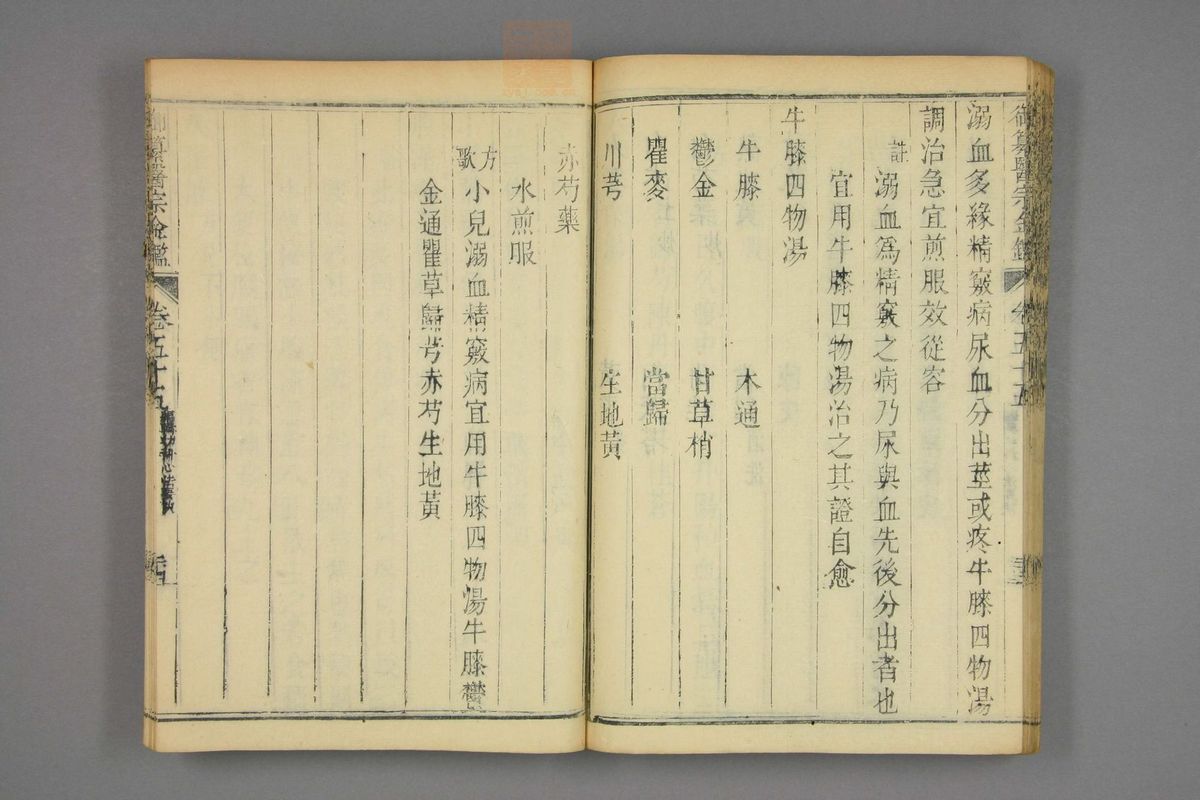 御纂醫宗金鑑 卷五十五
溺血多緣精竅病尿血分出莖或疼牛膝四物湯
調治急宜煎服效從容
註 溺血為精竅之病乃尿與血先後分出者也
宜用牛膝四物湯治之其證自愈
牛膝四物湯
牛膝 木通
鬱金 甘草梢
瞿麥 當歸
川芎 生地黃
赤芍藥
水煎服
方歌 小兒溺血精竅病宜用牛膝四物湯牛膝鬱
金通瞿草歸芎赤芍生地黃
御纂醫宗金鑑 卷五十五